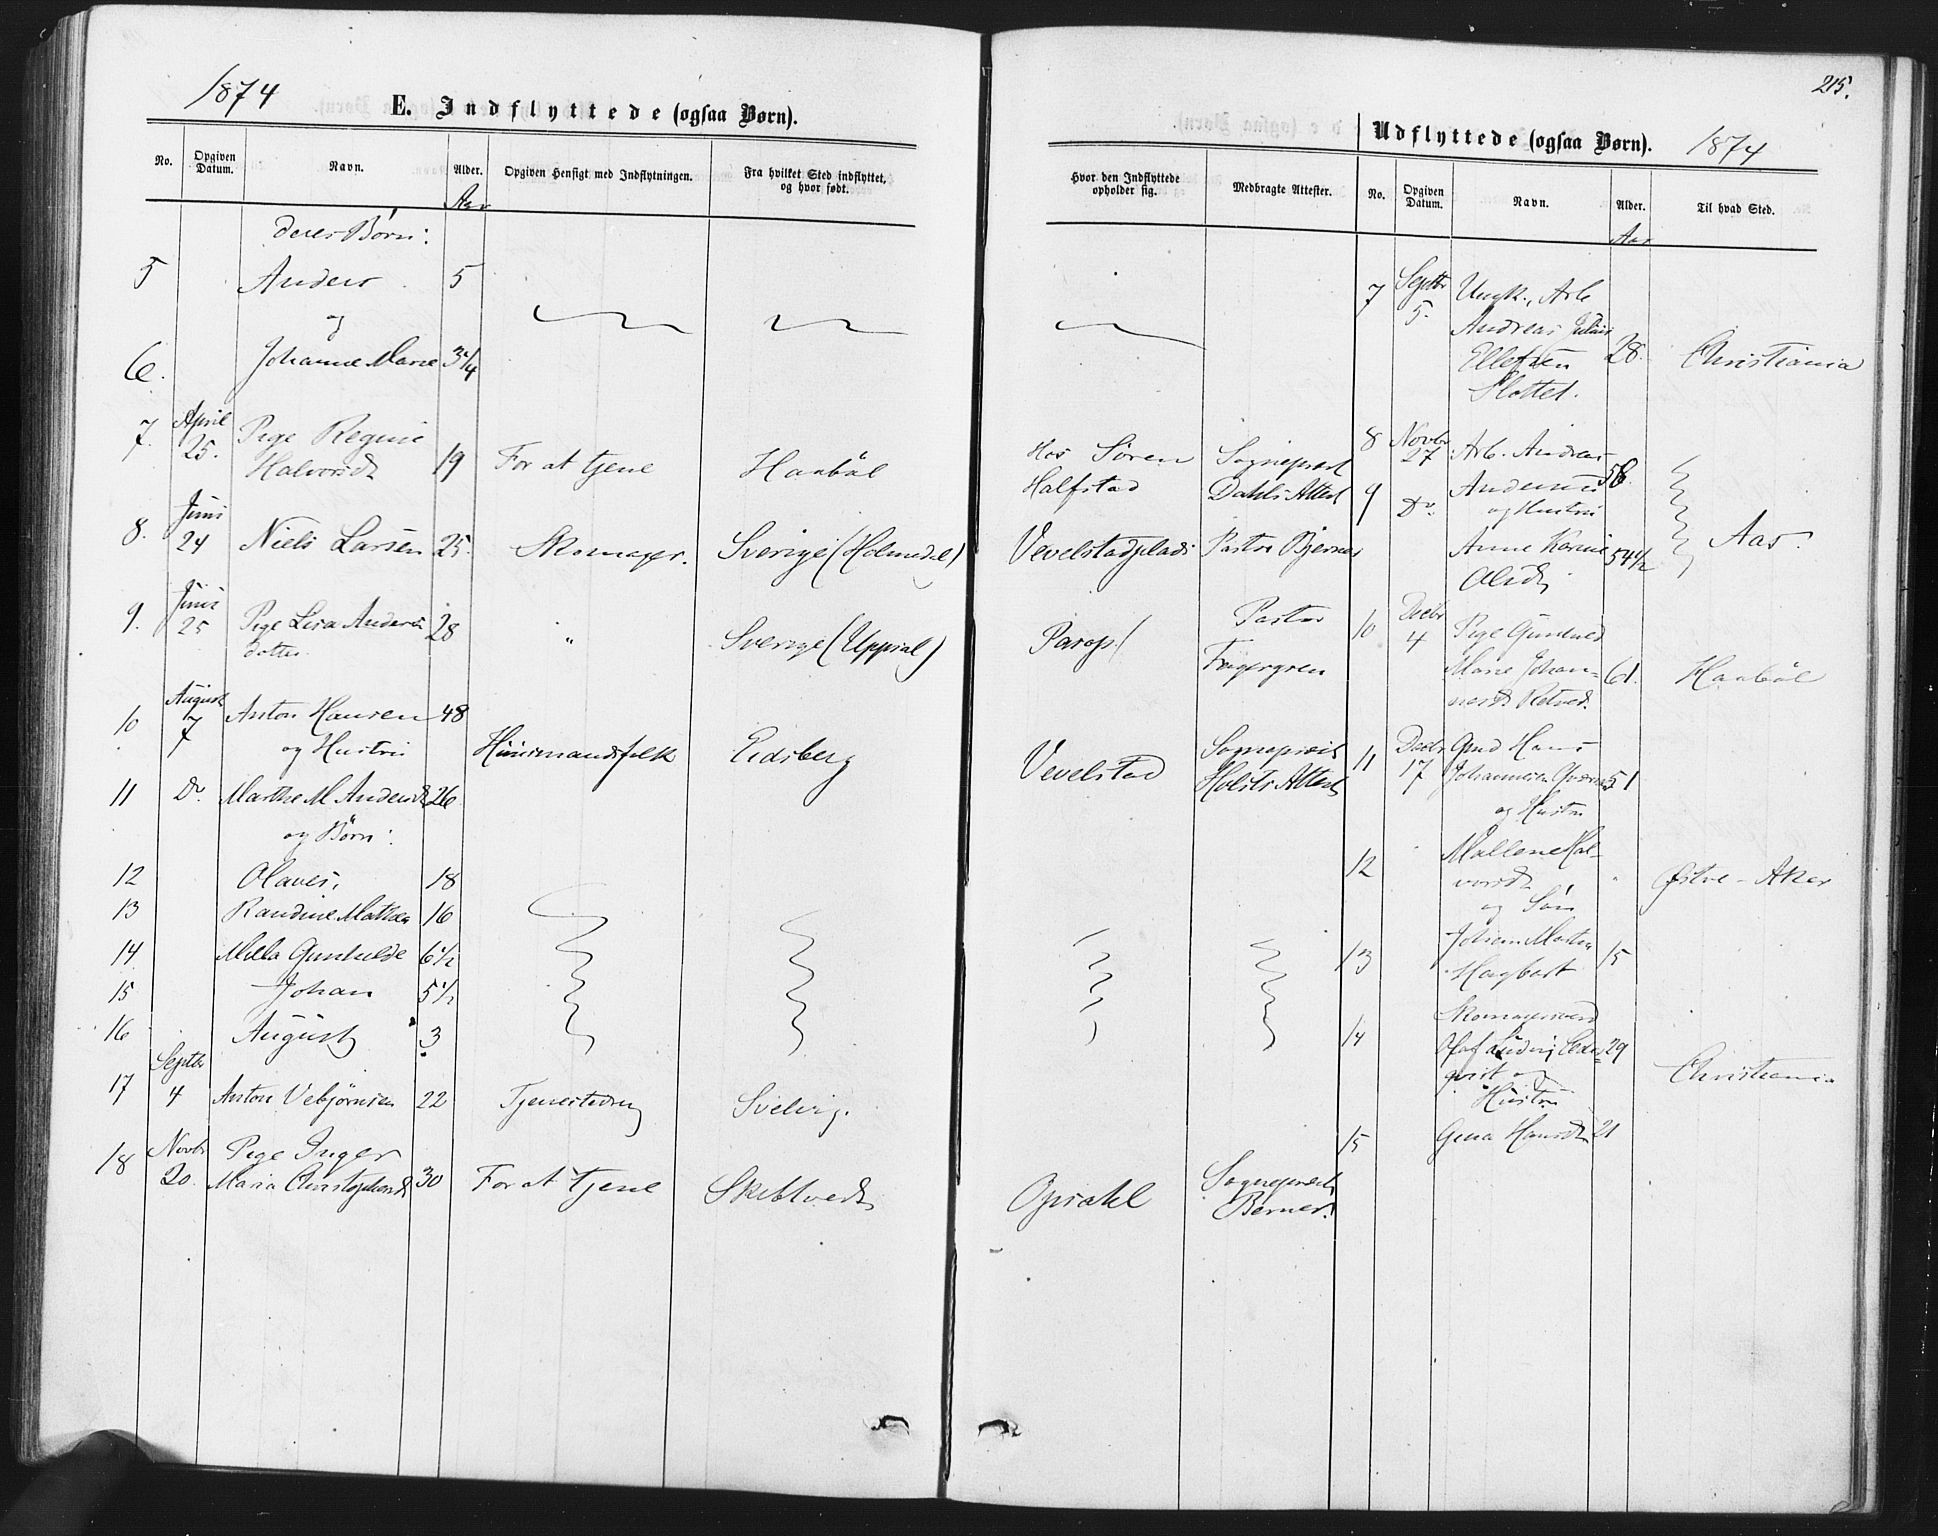 1874
E. Indflyttede (ogsaa Børn).
No. Opgiven Datum. Navn. Alder. Opgiven Hensigt med Indflytningen. Fra hvilket Sted indflyttet, og hvor født.
Aar
deres Børn:
5 Anders 5
og
6. Johanne Marie 3 1/4
7. April 25. Pige Regine
Halvorsdr 19 For at tjene Haabøl
8. Juni 24 Niels Larsen 25. Skomager. Sverige (Holmedal)
9. Juni 25 Pige Lisa Anders
dotter 28 " Sverige (Uppsal)
10 August 7 Anton Hansen 48
og Hustru Huusmandsfolk Eidsberg
11 Do. Marthe M. Andersdr 26
og Børn:
12 Olaves, 18
13 Randine Mathea 16
14 Milla Gunhilde 6 1/2
15 Johan 5 1/2
16 August 3
17 Septbr 4 Anton Vebjørnsen 22 Tjenestedreng Svelvig.
18 Novbr 20. Pige Inger
Maria Christophersdr 30 For at tjene Skibtvedt
215.
Udflyttede (ogsaa Børn). 1874
Hvor den Indflyttede opholder sig. Medbragte Attester. No. Opgiven Datum. Navn. Alder. Til hvad Sted.
Aar
7 Septbr 5. Ungk., Arb
Andreas Julius
Ellefsen 28. Christiania
Slottet.
Hos Søren Sognepræst 8 Novbr 27 Arb. Andreas
Halfstad Dahls Attest 9 Do. Andersen 58.
og Hustru
Vevelstadplads Pastor Bjerner Anne Karine 54 1/2 Aas.
Olsdr
Pastor 10 Decbr 4 Pige Gunhild
Fagergren Marie Johan- 61. Haabøl
nesdr
Vevelstad Sognepræst 11 Decbr 17 Gmd Hans
Holsts Attest Johannesen 51
og Hustru
12 Mallene Hal-
vorsdr Østre-Aker
og Søn
13 Johan Martin 15
Hagbart
Skomagersvend
14 Olaf 29
qvist og Christiania
Hustru
15 Gina Hansdr 21
Opsahl Sognepræst
Berner.